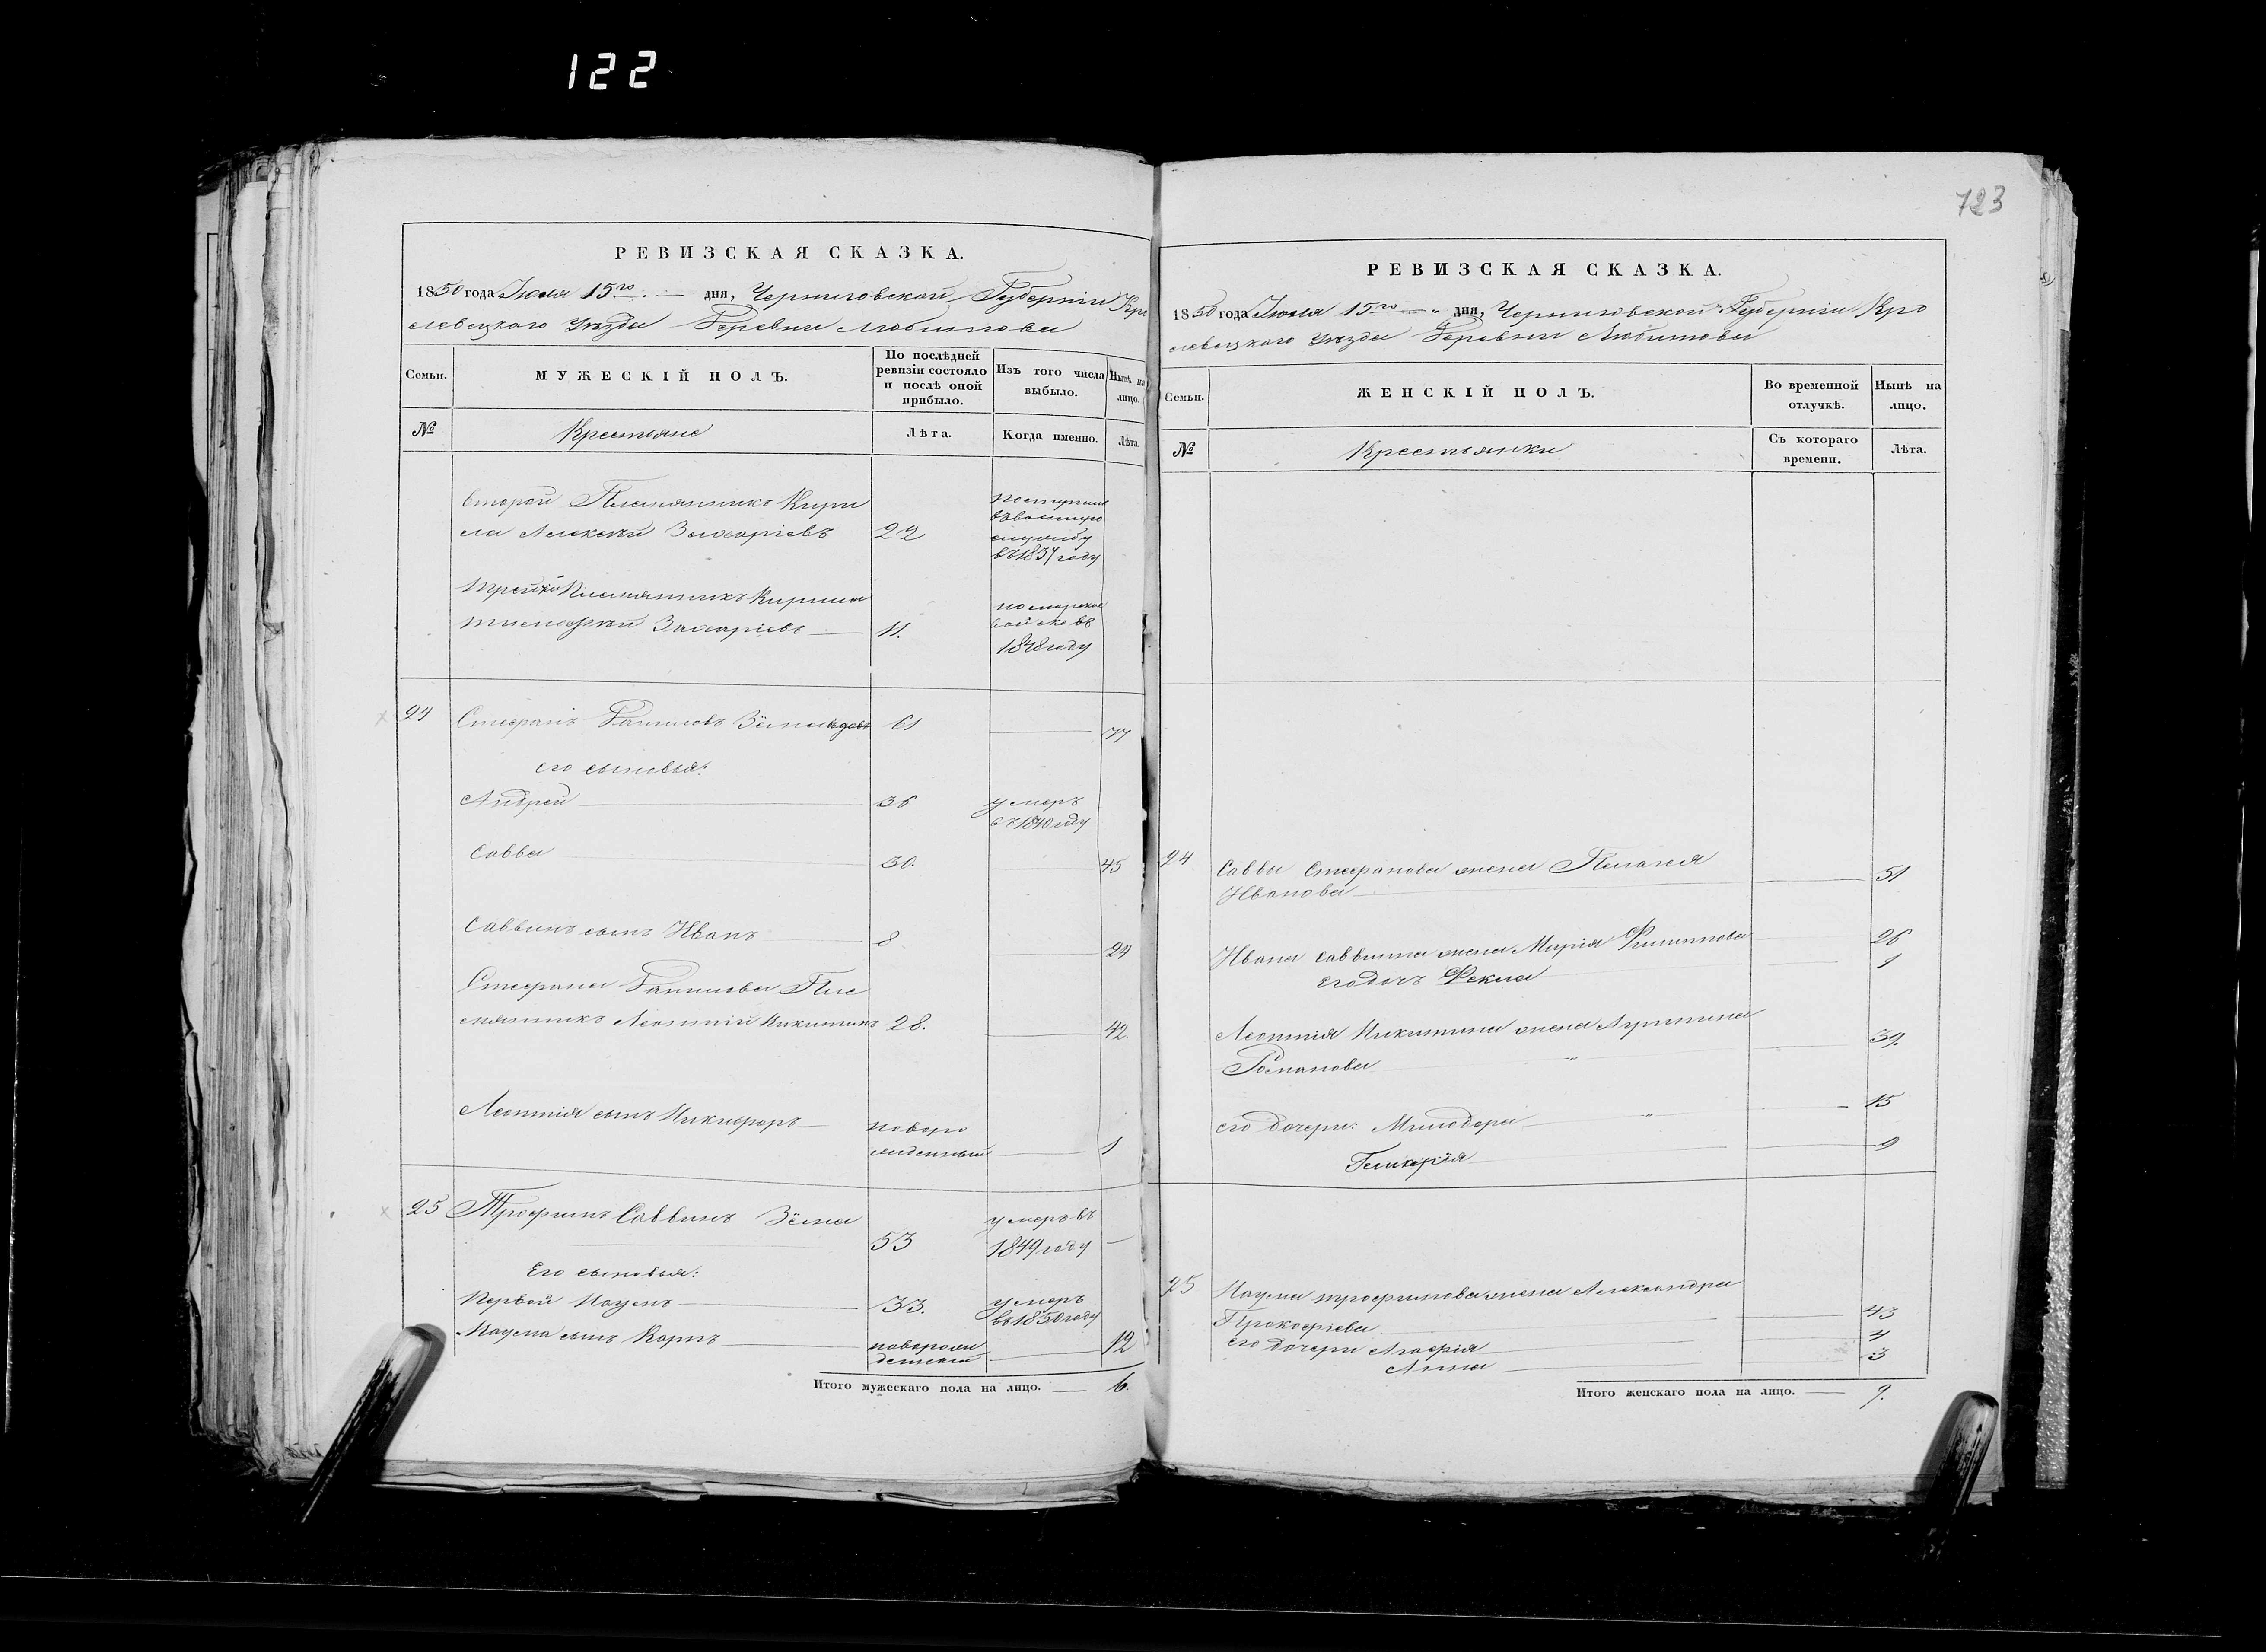 122
723
РЕВИЗСКАЯ СКАЗКА.
1850 года Июля 15го дня, Черниговской Губерніи Кро
левецкого Уезда Деревни Любитова
Семьи.
МУЖЕСКІЙ ПОЛЪ.
По послѣдней ревизіи состояло и послѣ оной прибыло.
Изъ того числа выбыло.
Нынѣ на лицо.
№
Крестьяне
Лѣта.
Когда именно.
Лѣта.
второй Племянникъ Кири
ла Алексей Захаріевъ 22
поступил
въ военную
службу
въ 1837 году
третій Племянникъ Кирила
Тимофей Захаріевъ 11.
1848 году
24 Стефанъ Даниловъ 61 77
его сыновья:
Андрей 36 умеръ
въ 1840 году
Савва 30. 45
Саввинъ сынъ Иванъ 8 24
Стефана Данилова Пле
мянникъ Леонтій Никитинъ 28. 42.
Леонтія сынъ Никифоръ новоро
жденный 1
25 Трофимъ Саввинъ Зёма 53
умеръ въ
1849 году
Его сыновья:
Первой Наумъ 33. умеръ
въ 1850 году
Наума сынъ Карпъ новорож
денный 12
Итого мужескаго пола на лицо. 6.
РЕВИЗСКАЯ СКАЗКА.
1850 года Июля 15го дня, Черниговской Губерніи Кро
левецкого Уезда Деревни Любитова
Семьи.
ЖЕНСКІЙ ПОЛЪ.
Во временной отлучкѣ.
Нынѣ на лицо.
№
Крестьянки
Съ котораго времени.
Лѣта.
24 Саввы Стефанова жена Пелагея
Иванова 51
Ивана Саввина жена Марія Филиппова 26
его дочь Фекла 1
Леонтія Никитина жена Агрипина
Романова 39.
его дочери: Минодора 15
Гликерія 9
25 Наума Трофимова жена Александра
Прокофіева 43
его дочери Агафія 4
Анна 3
Итого женскаго пола на лицо. 9.